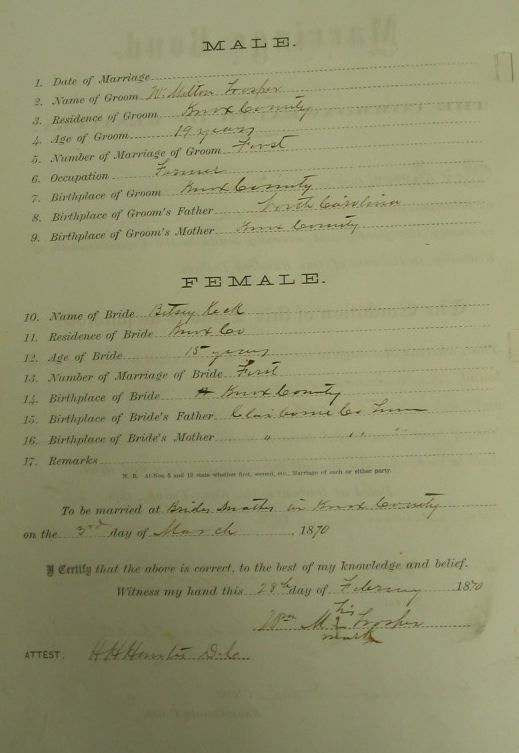 MALE.
1. Date of Marriage
2. Name of Groom W. Milton Losher
3. Residence of Groom Knox County
4. Age of Groom 19 years
5. Number of Marriage of Groom First
6. Occupation Farmer
7. Birthplace of Groom Knox County
8. Birthplace of Groom's Father North Carolina
9. Birthplace of Groom's Mother Knox County
FEMALE.
10. Name of Bride Betsey Keck
11. Residence of Bride Knox Co
12. Age of Bride 15 years
13. Number of Marriage of Bride First
14. Birthplace of Bride Knox County
15. Birthplace of Bride's Father Claiborne Co Tenn
16. Birthplace of Bride's Mother " " "
17. Remarks
N. B. At Nos. 5 and 13 state whether first, second, etc., Marriage of each or either party.
To be married at Brides Mother in Knox County
on the 3rd day of March, 1870
I Certify that the above is correct, to the best of my knowledge and belief.
Witness my hand this 28th day of February 1870
his
Wm M Losher
mark
ATTEST: H H D.C.